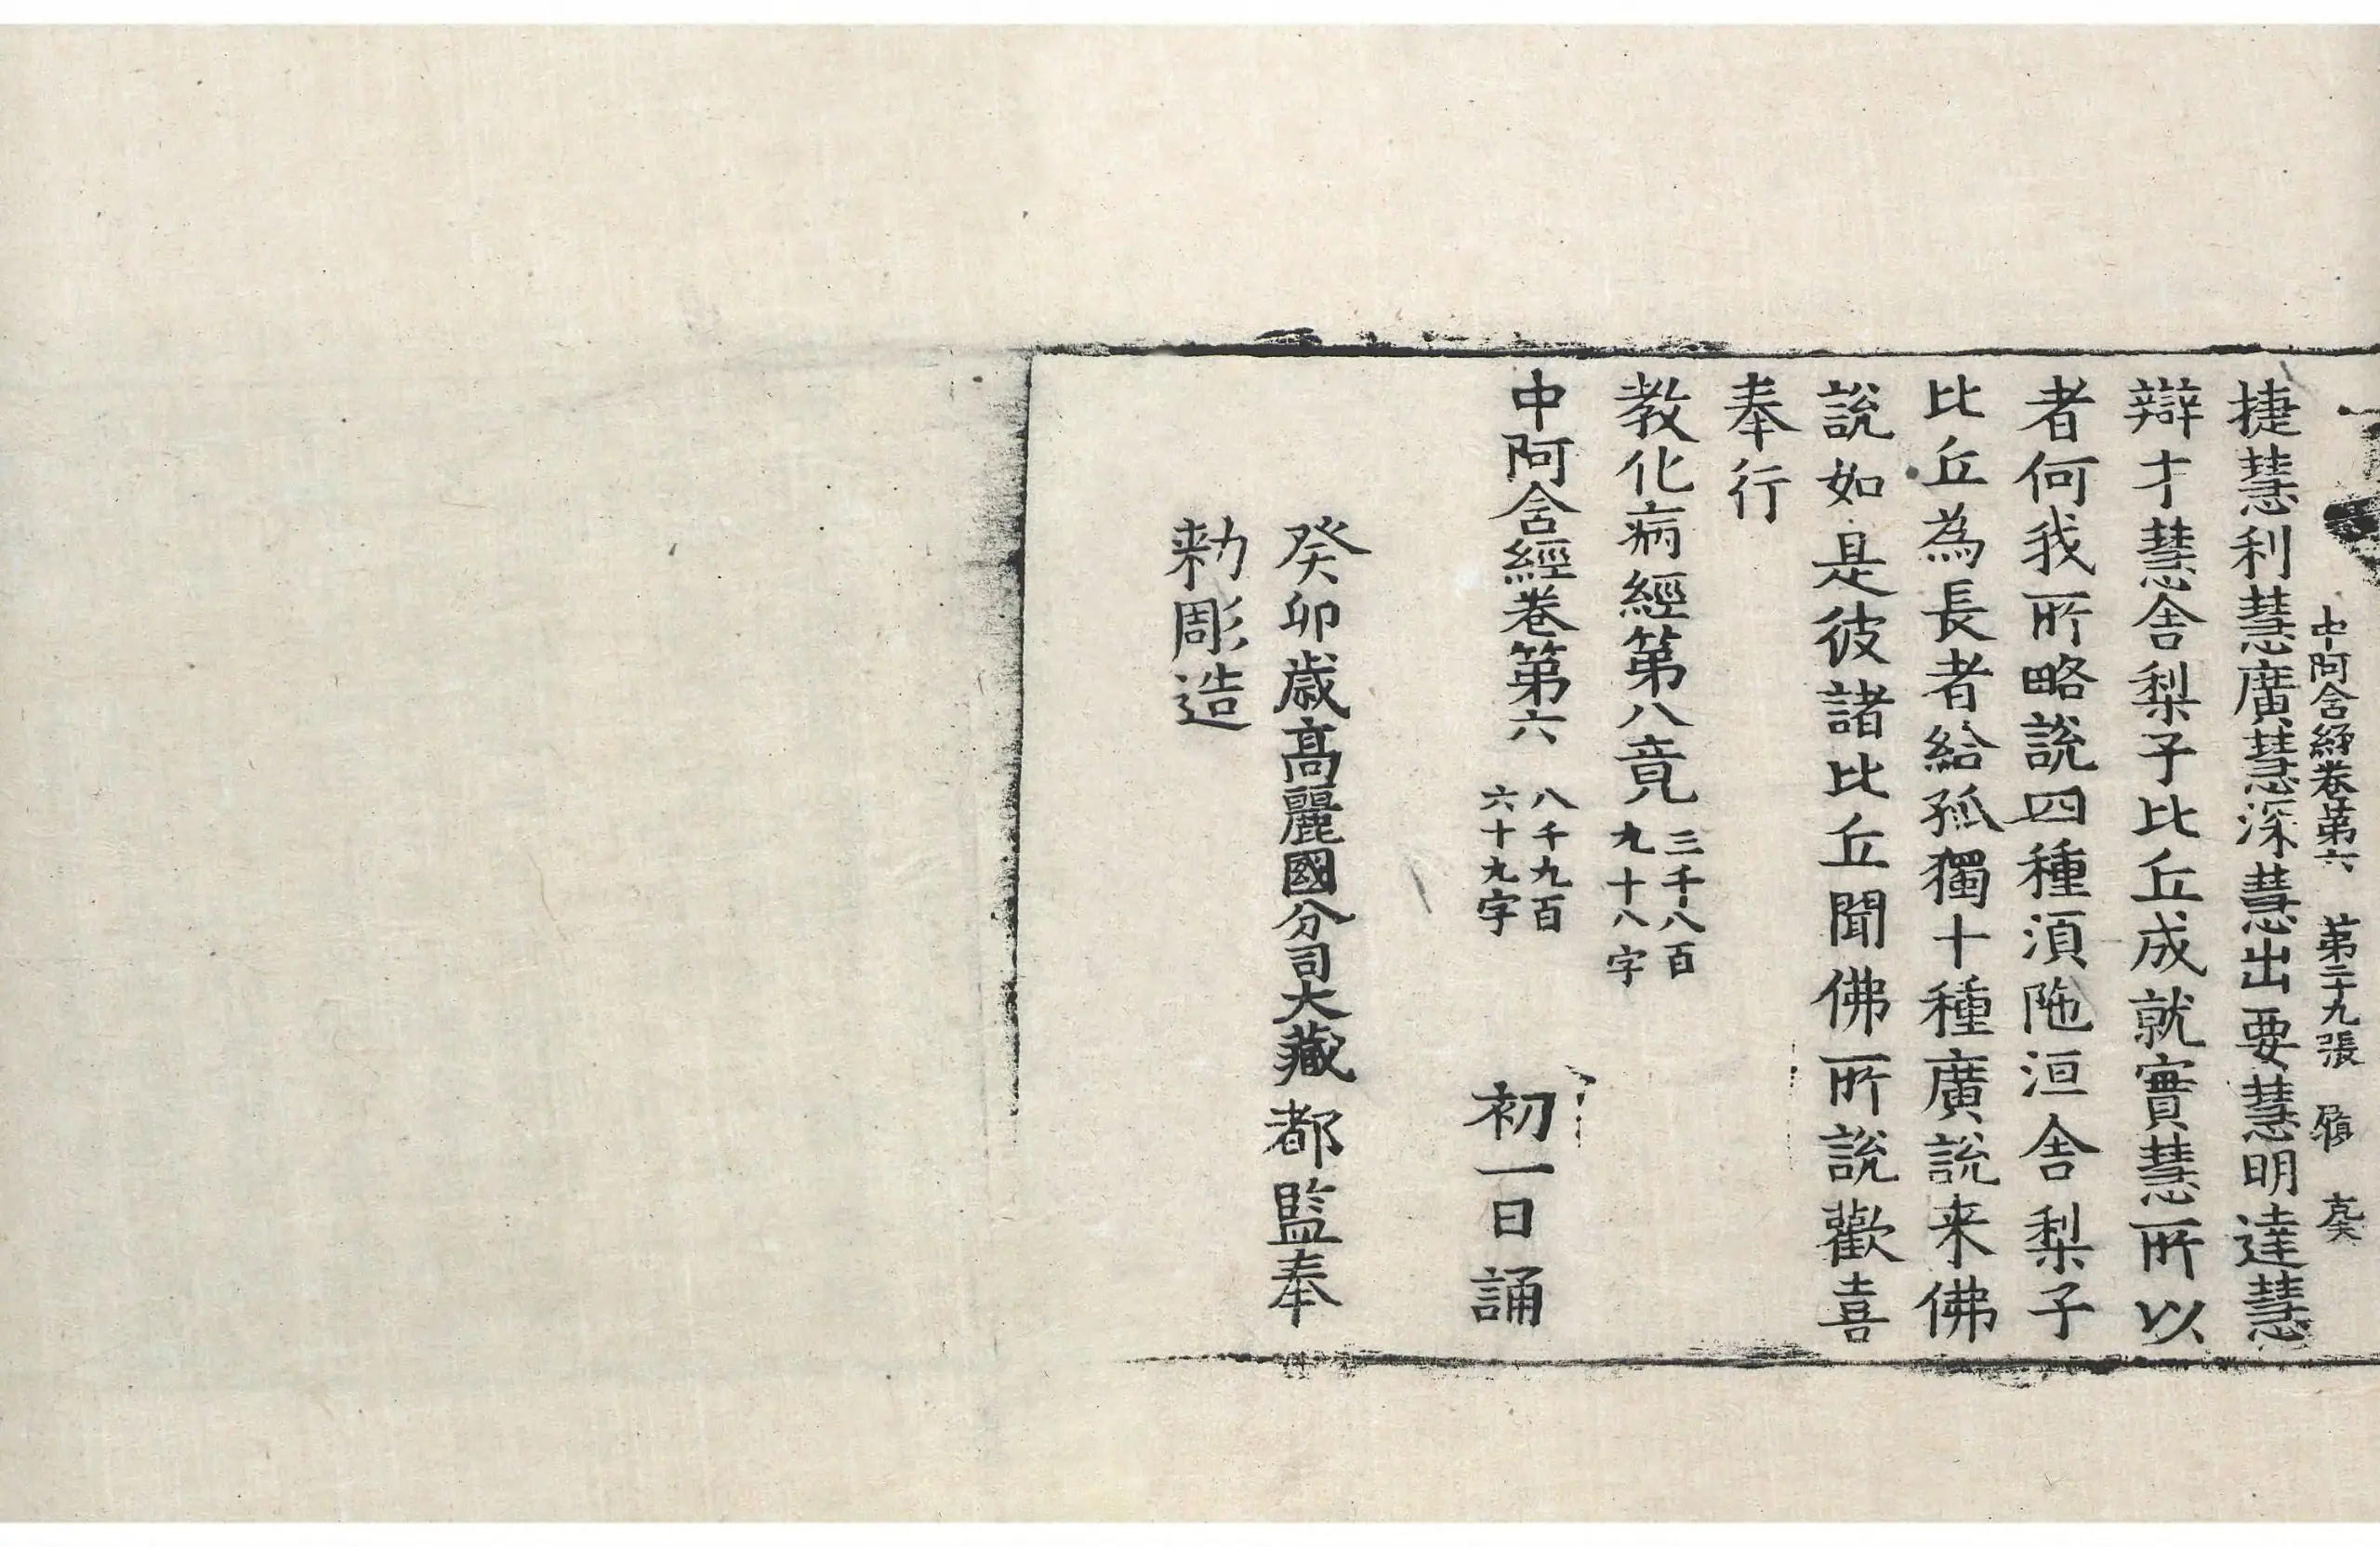 中阿含經卷第六 第二十九張
捷慧利慧廣慧深慧出要慧明達慧
辯才慧舍梨子比丘成就實慧所以
者何我所略說四種須陁洹舍梨子
比丘為長者給孤獨十種廣說来佛
說如是彼諸比丘聞佛所說歡喜
奉行
教化病經第八竟 三千八百
九十八字
中阿含經卷第六 八千九百
六十九字 初一日誦
癸卯歲高麗國分司大藏都監奉
勑彫造